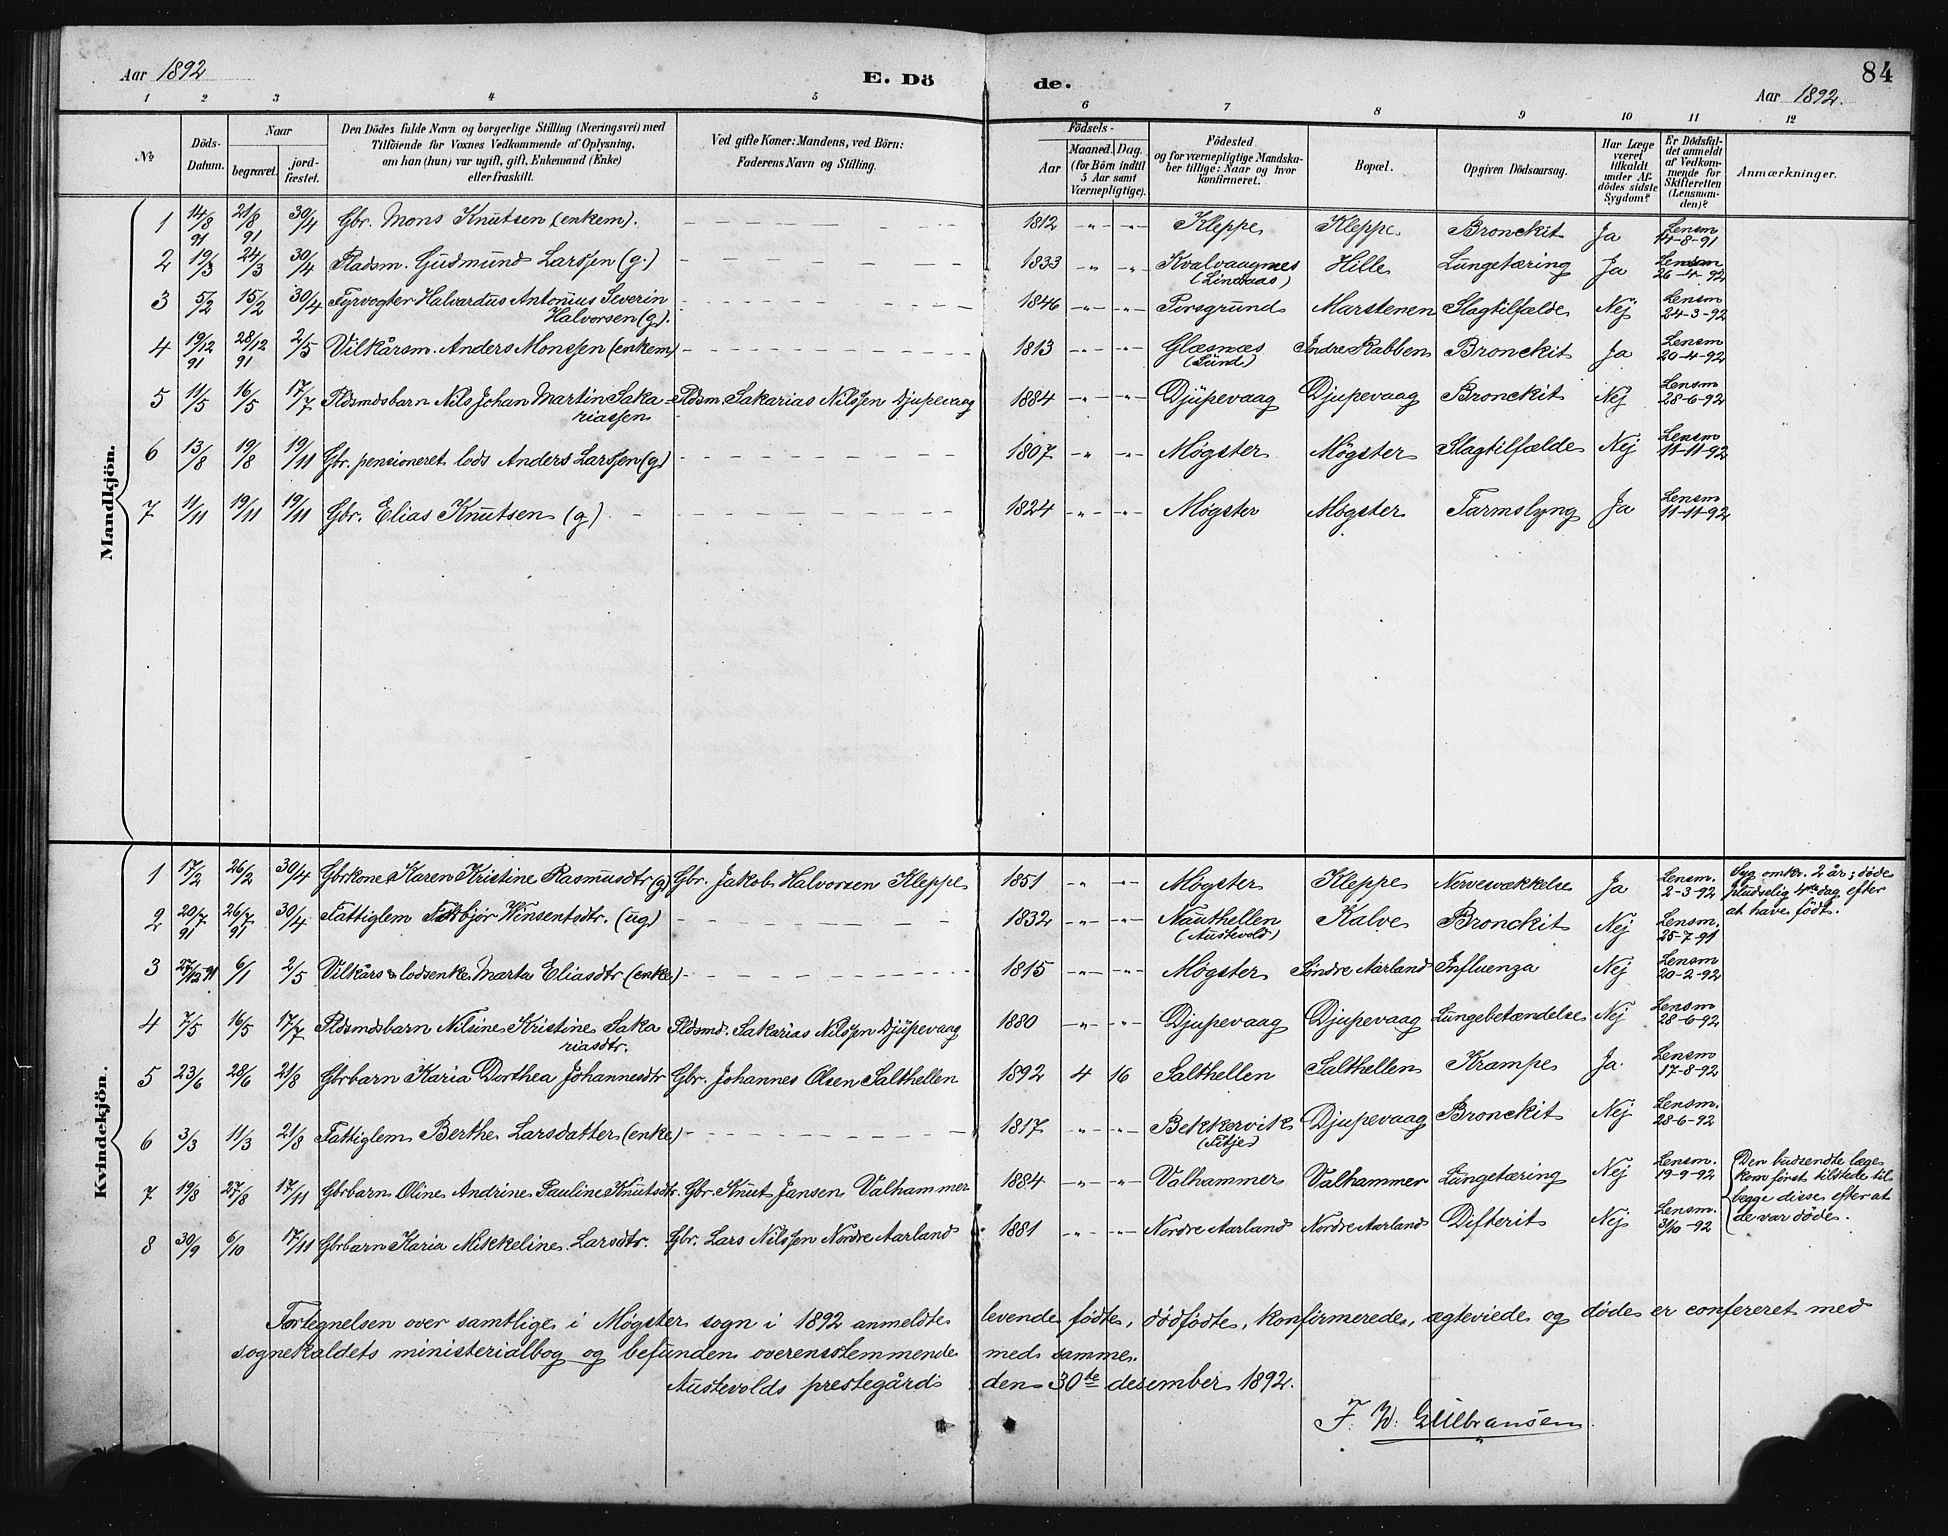 Aar 1892 E. Dö de. 84
Aar 1892.
1 2 3 4 5 6 7 8 9 10 11 12
№ Döds-Datum. Naar begravet. jordfæstet. Den Dödes fulde Navn og borgerlige Stilling (Næringsvei) med Tilföiende for Voxnes Vedkommende af Oplysning, om han (hun) var ugift, gift, Enkemand (Enke) eller fraskilt. Ved gifte Koner: Mandens, ved Börn: Faderens Navn og Stilling. Födsels- Aar Maaned. Dag. (for Börn indtil 5 Aar samt Værnepligtige). Födested og for værnepligtige Mandskaber tillige: Naar og hvor konfirmeret. Bopæl. Opgiven Dödsaarsag. Har Læge været tilkaldt under Afdödes sidste Sygdom? Er Dödsfaldet anmeldt af Vedkommende for Skifteretten (Lensmanden)? Anmærkninger.
Mandkjön.
1 14/8 91 21/8 91 30/4 Gbr. Mons Knutsen (enkem). 1812 -"- -"- Kleppe Kleppe Bronckit Ja Lensm 14-8-91
2 19/3 24/3 30/4 Pladsm. Gudmund Larssen (g.) 1833 " -"- Kvalvaagnes (Lindaas) Hille Lungetæring Ja Lensm 26-4-92
3 5/2 15/2 30/4 Fyrvogter Halvardus Antonius Severin Halvorsen (g). 1846 -"- -"- Porsgrund Marstenen Slagtilfælde Nej Lensm 24-3-92
4 19/12 91 28/12 91 2/5 Vilkårsm. Anders Monssen (enkem) 1813 -"- -"- Glæsnæs (Sund) Indre Rabben Bronckit Ja Lensm 20-4-92
5 11/5 16/5 17/7 Pldsmdsbarn Nils Johan Martin Sakariassen Pldsm. Sakarias Nilssen Djupevaag 1884 -"- -"- Djupevaag Djupevaag Bronckit Nej Lensm 28-6-92
6 13/8 19/8 19/11 Gbr. pensioneret lods Anders Larssen (g) 1807 -"- -"- Møgster Møgster Slagtilfælde Nej Lensm 11-11-92
7 11/11 19/11 19/11 Gbr. Elias Knutsen (g) 1824 -"- -"- Møgster Møgster Tarmslyng Ja Lensm 11-11-92
Kvindekjön.
1 17/2 26/2 30/4 Gbrkone Karen Kristine Rasmusdtr (g) Gbr. Jakob Halvorsen Kleppe 1851 -"- -"- Møgster Kleppe Nervesvækkelse Ja Lensm. 2-3-92 Syg omkr. 2 år; døde pludselig 4de dag efter at have født.
2 20/7 91 26/7 91 30/4 Fattiglem Winsentsdtr. (ug) 1832 -"- -"- Nauthellen (Austevold) Kalve Bronckit Nej Lensm. 25-7-91
3 27/12 91 6/1 2/5 Vilkårs & lodsenke Marta Eliasdtr (enke) 1815 -"- -"- Møgster Søndre Aarland Influenza Nej Lensm 20-2-92
4 7/5 16/5 17/7 Pldsmdsbarn Nilsine Kristine Sakariasdtr. Pldsmd. Sakarias Nilssen Djupevaag 1880 -"- -"- Djupevaag Djupevaag Lungebetændelse Nej Lensm 28-6-92
5 23/6 28/6 21/8 Gbrbarn Karia Dorthea Johannesdtr Gbr. Johannes Olsen Salthellen 1892 4 16 Salthellen Salthellen Krampe Ja. Lensm 17-8-92
6 3/3 11/3 21/8 Fattiglem Berthe Larsdatter (enke) 1817 -"- -"- Bekkervik (Fitje) Djupevaag Bronckit Nej Lensm. 28-6-92
7 19/8 27/8 17/11 Gbrbarn Oline Andrine Pauline Knutsdtr. Gbr. Knut Jansen Valhammer 1884 -"- -"- Valhammer Valhammer Lungetæring Nej Lensm. 19-9-92 Den budsendte læge kom først tilstede til begge disse efter at de var døde.
8 30/9 6/10 17/11 Gbrbarn Karia Mikkeline Larsdtr. Gbr. Lars Nilssen Nordre Aarland 1881 -"- -"- Nordre Aarland Nordre Aarland Difterit Nej Lensm. 3/10-92
Fortegnelsen over samtlige i Møgster sogn i 1892 anmeldte levende fødte, dødfødte, konfirmerede, ægteviede og døde er confereret med
sognekaldets ministerialbog og befunden overensstemmende med samme.
Austevolds prestegård den 30te desember 1892.
F. W. Gulbransen